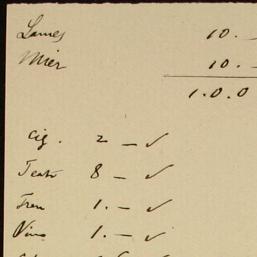 Lames 10. -
Mier 10. -
1.0.0
Cig. 2 - ✓
Teatro 8 - ✓
Tren 1. - ✓
Vino 1. - ✓